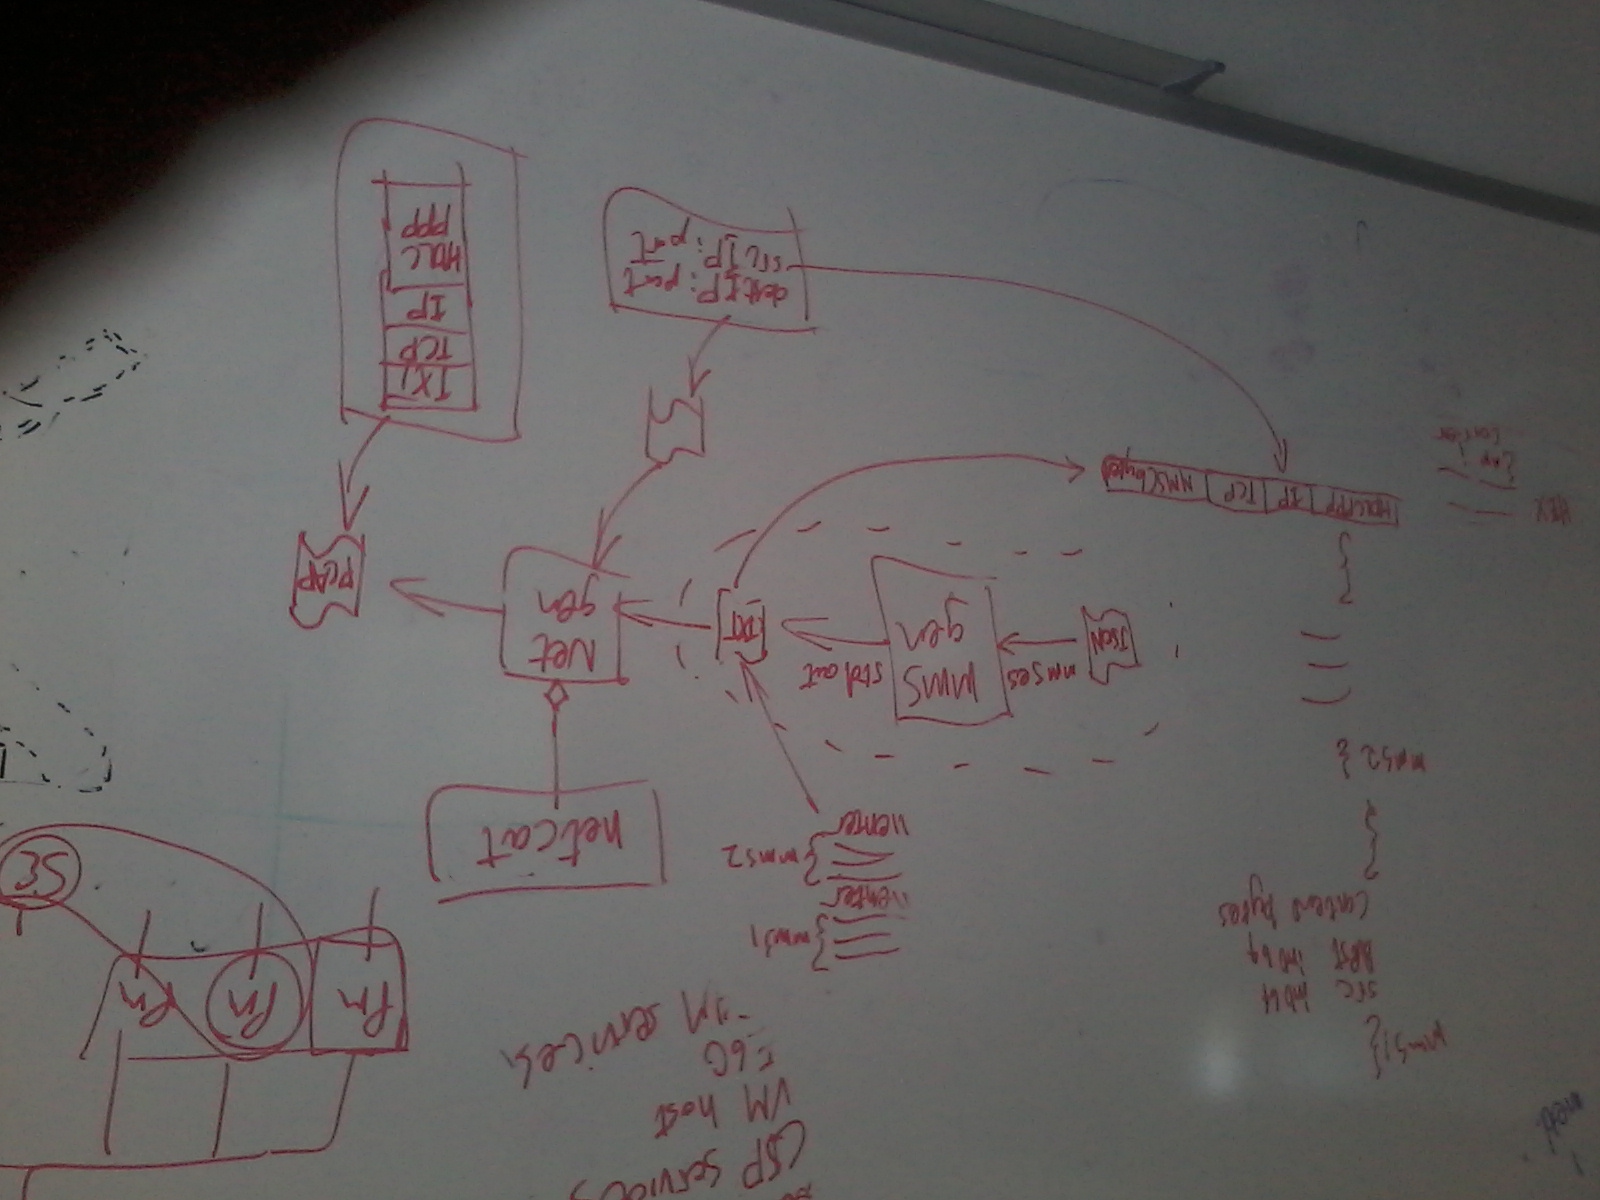 CSP services
VM host
E6O
services
Pm
Pm
Pm
SE
mms1{
src int64
dest int64
content bytes
}
mms2 {
}
mms1
\\enter
mms2
\\enter
netcat
JSON
mmses
MMS
gen
std out
TXT
Net
gen
PCAP
HEX
HDLC PPP
IP
TCP
MMS(bytes)
dest IP: port
src IP: port
TXT
TCP
IP
HDLC
PPP